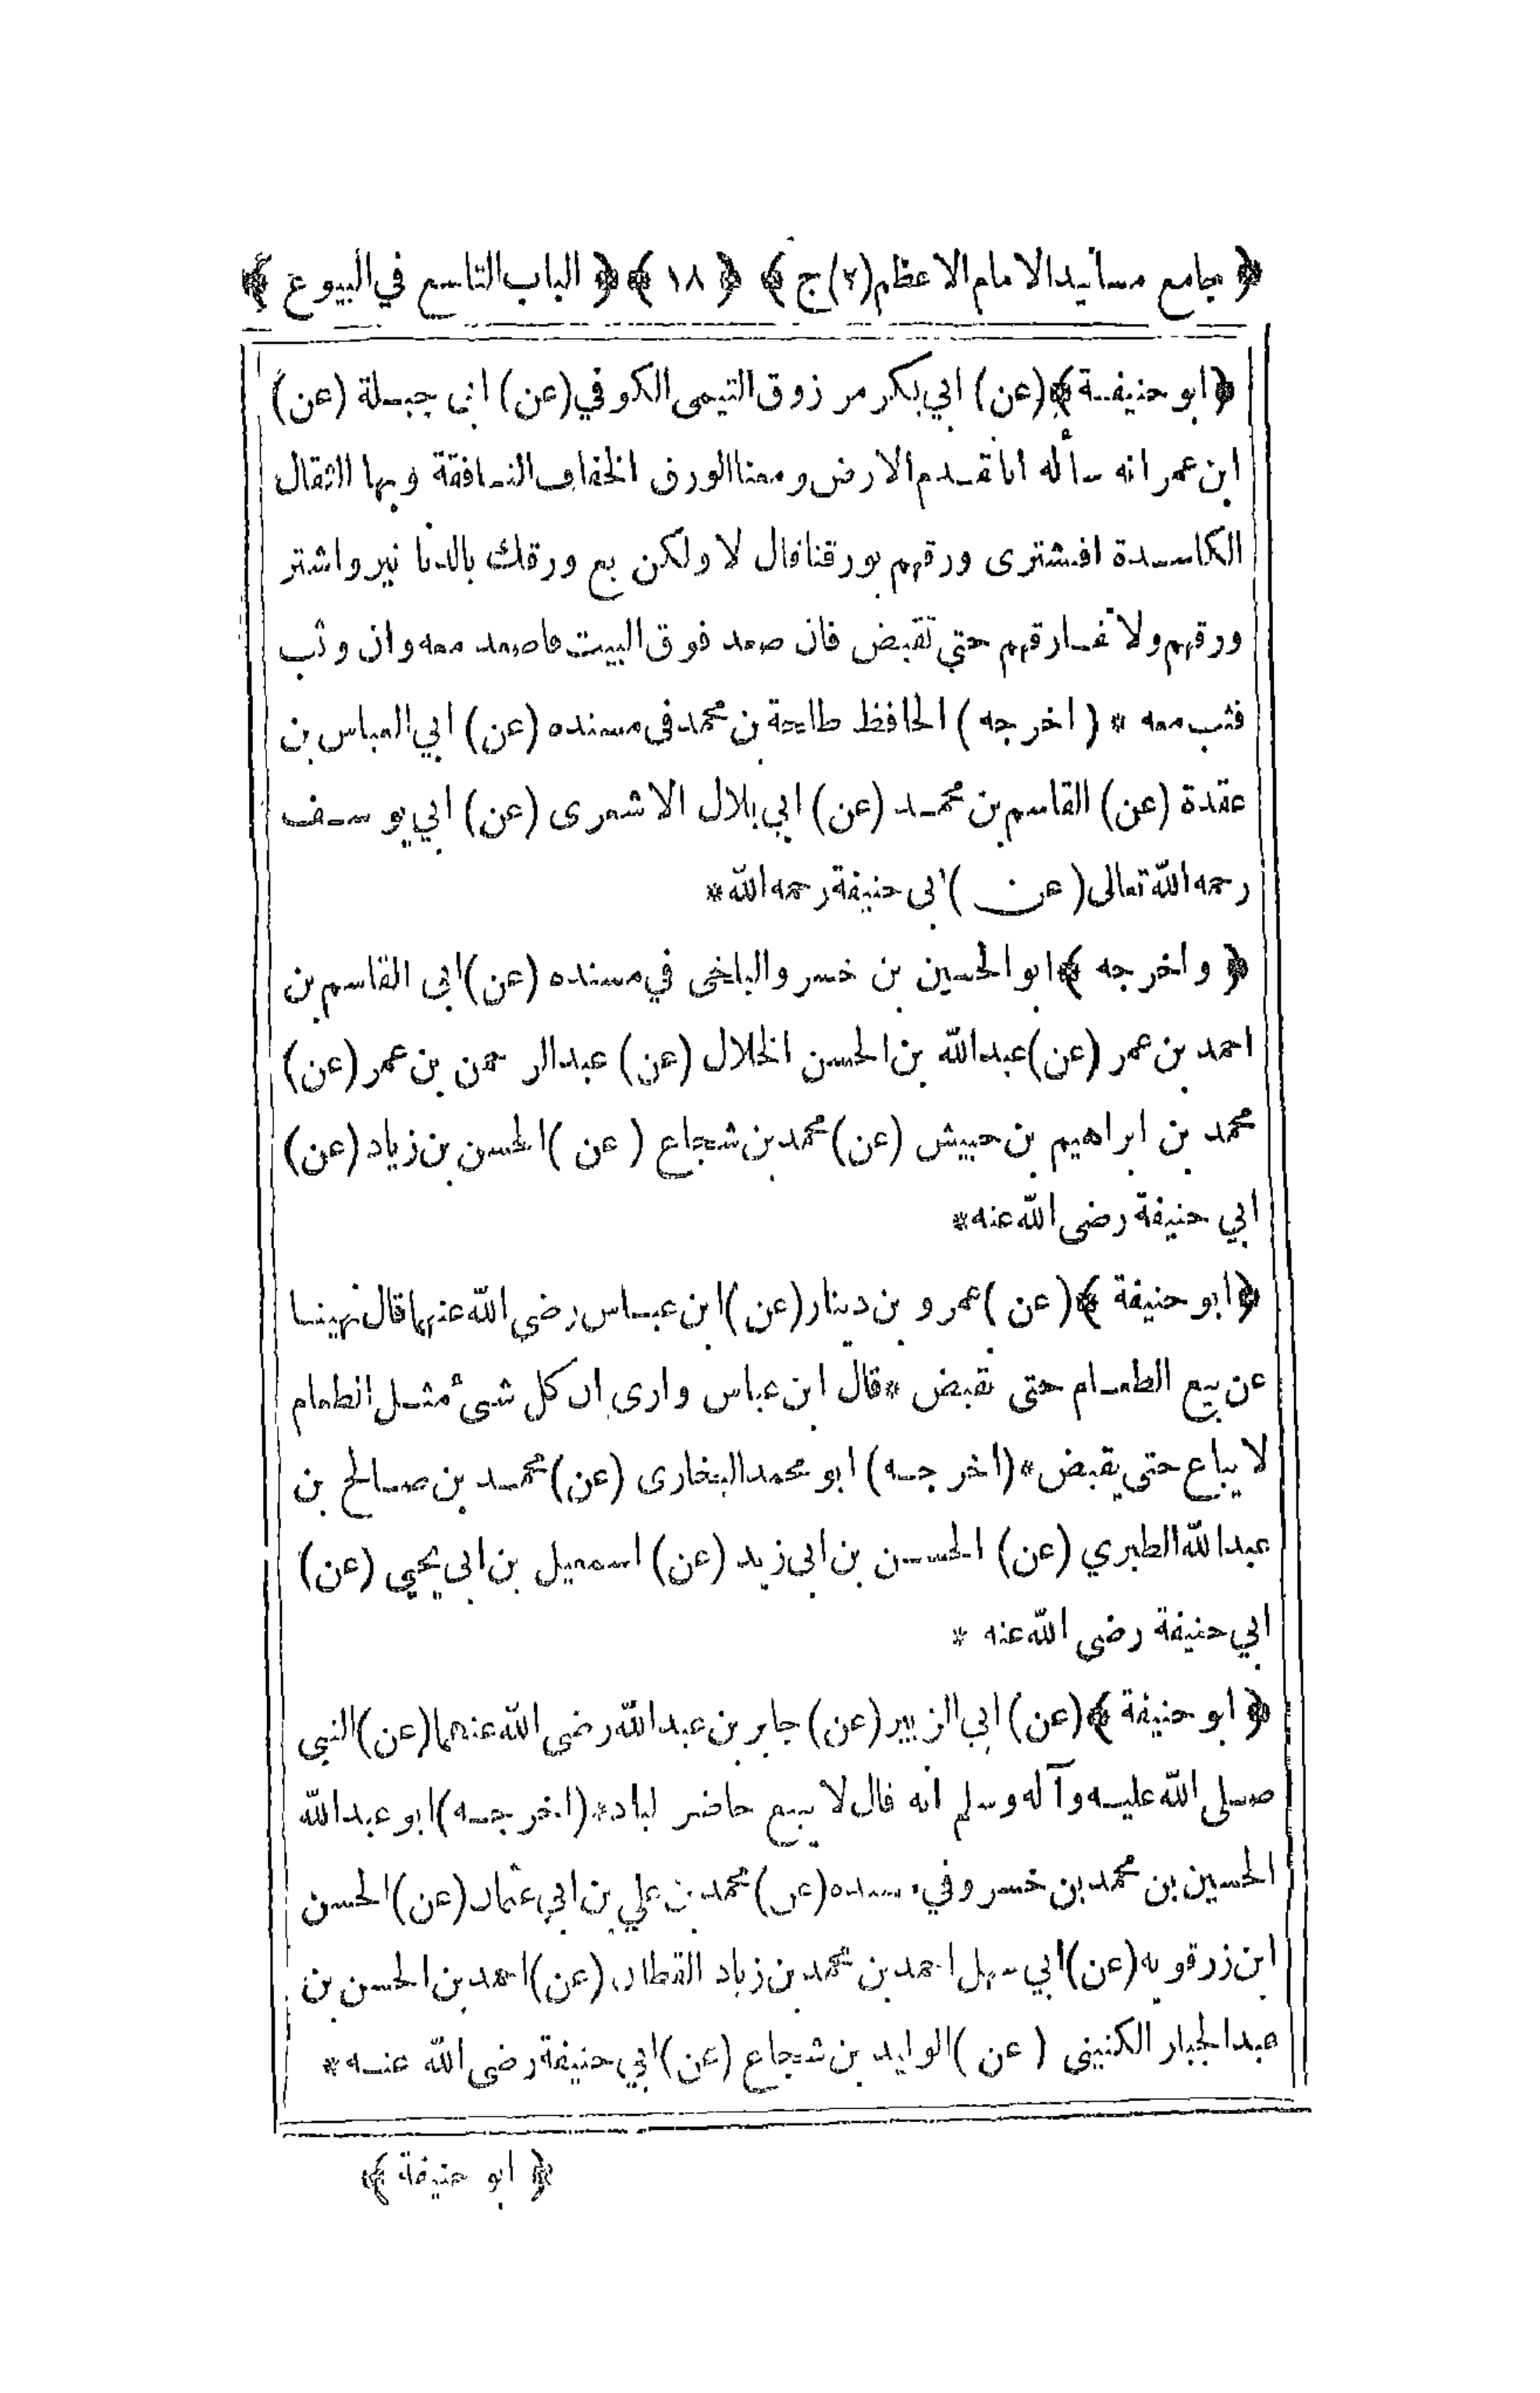 ﴿ جامع مسانيد الامام الاعظم (٢) ج ﴾ ﴿ ١٨ ﴾ ﴿ الباب التاسع في البيوع ﴾
﴿ ابو حنيفة ﴾ (عن) ابي بكر مرزوق التيمى الكوفي (عن) ابى جبلة (عن)
ابن عمر انه سأله انا نقدم الارض ومعنا الورق الخفاف النافقة وبها الثقال
الكاسدة افنشترى ورقهم بورقنا فقال لا ولكن بع ورقك بالدنانير واشتر
ورقهم ولا تفارقهم حتي تقبض فان صعد فوق البيت فاصعد معه وان وثب
فثب معه * (اخرجه) الحافظ طلحة بن محمد فى مسنده (عن) ابي العباس بن
عقدة (عن) القاسم بن محمد (عن) ابي بلال الاشعرى (عن) ابي يوسف
رحمه الله تعالى (عن) ابى حنيفة رحمه الله *
﴿ واخرجه ﴾ ابو الحسين بن خسرو البلخى في مسنده (عن) ابى القاسم بن
احمد بن عمر (عن) عبدالله بن الحسن الخلال (عن) عبدالرحمن بن عمر (عن)
محمد بن ابراهيم بن حبيش (عن) محمد بن شجاع (عن) الحسن بن زياد (عن)
ابي حنيفة رضى الله عنه *
﴿ ابو حنيفة ﴾ (عن) عمرو بن دينار (عن) ابن عباس رضى الله عنهما قال نهينا
عن بيع الطعام حتى تقبض * قال ابن عباس وارى ان كل شئ مثل الطعام
لا يباع حتى يقبض * (اخرجه) ابو محمد البخارى (عن) محمد بن صالح بن
عبدالله الطبري (عن) الحسن بن ابى زيد (عن) اسمعيل بن ابى يحيي (عن)
ابي حنيفة رضى الله عنه *
﴿ ابو حنيفة ﴾ (عن) ابي الزبير (عن) جابر بن عبدالله رضى الله عنهما (عن) النبي
صلى الله عليه وآله وسلم انه قال لا يبيع حاضر لباد * (اخرجه) ابو عبدالله
الحسين بن محمد بن خسرو في مسنده (عن) محمد بن علي بن ابي عثمان (عن) الحسن
ابن زرقويه (عن) ابي سهل احمد بن محمد بن زياد القطان (عن) احمد بن الحسن بن
عبدالجبار الكنينى (عن) الوليد بن شجاع (عن) ابي حنيفة رضى الله عنه *
﴿ ابو حنيفة ﴾